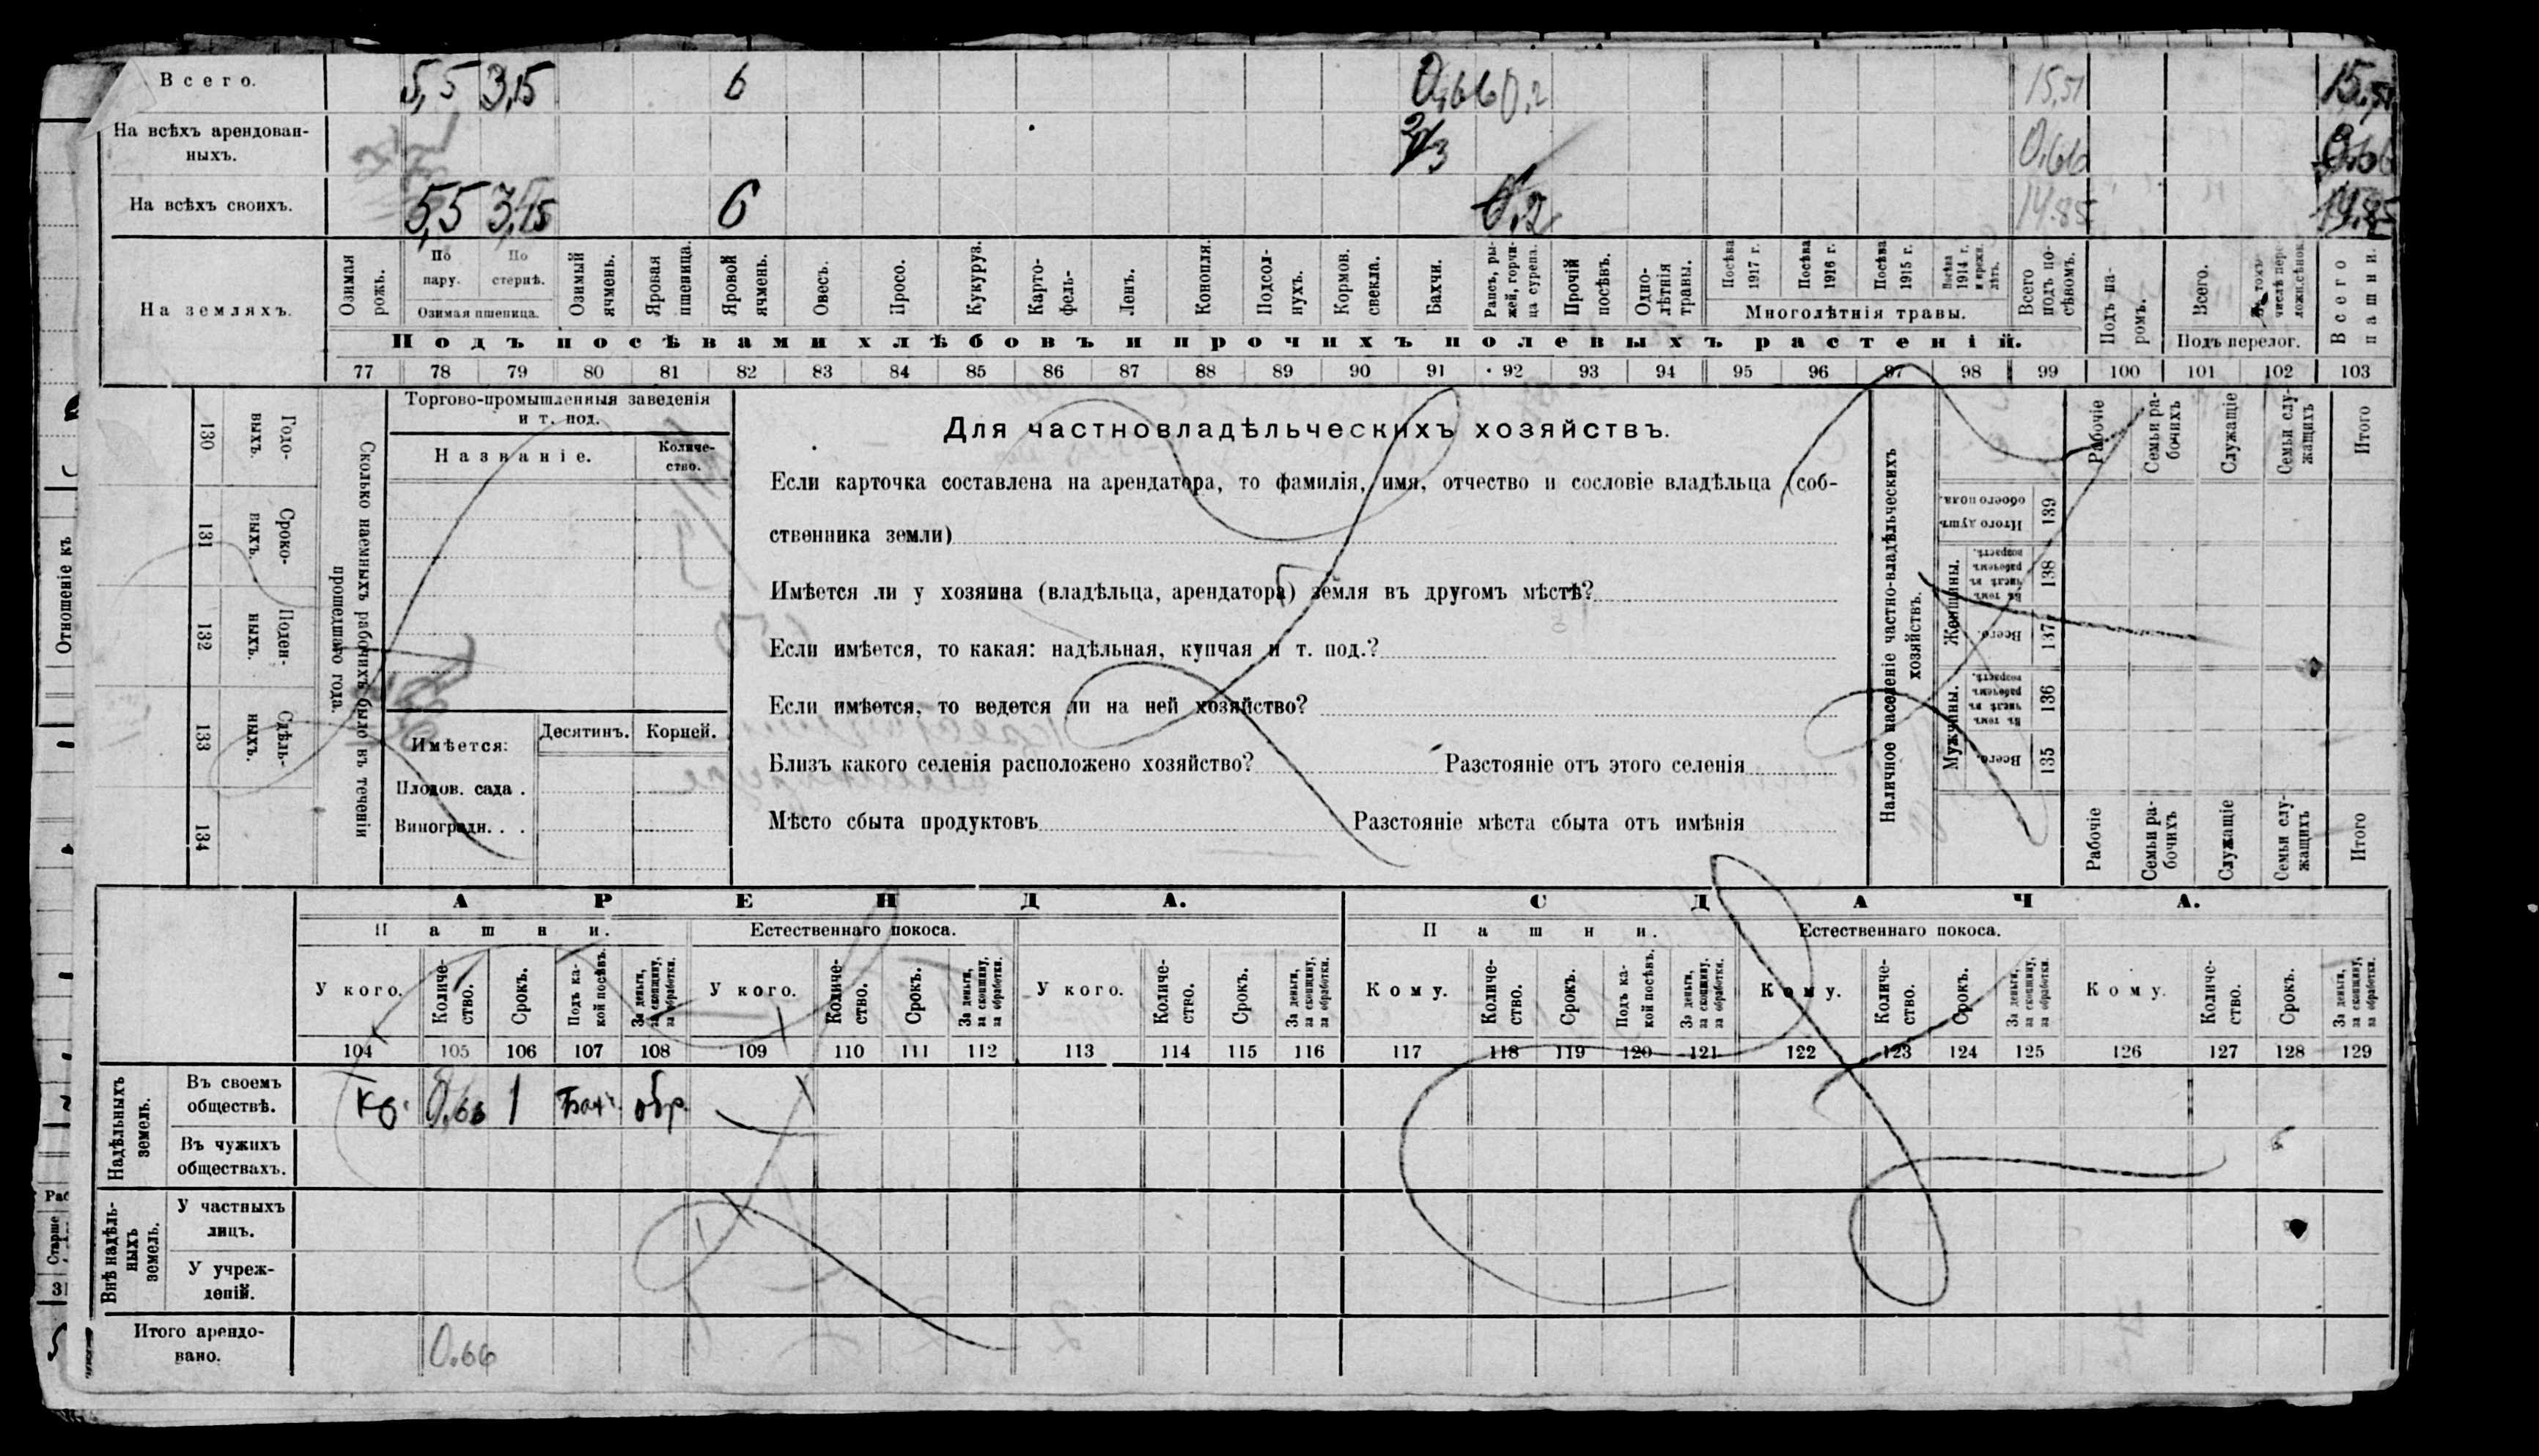 Всего. 5,5 3,15 6 0,66 0,2 15,51 15,51
На всѣхъ арендован-
ныхъ. 2/3 0,66 0,66
На всѣхъ своихъ. 5,5 3,15 6 0,2 14.85 14.85
На земляхъ.
Озимая рожь.
По пару.
По стернѣ.
Озимая пшеница.
Озимый ячмень.
Яровая пшеница.
Яровой ячмень.
Овесъ.
Просо.
Кукуруз.
Карто-
фель-
Ленъ.
Конопля.
Подсол-
нухъ.
Кормов. свекла.
Бахчи.
Рапсъ, ры-
жей, горчи-
ца сурепа.
Прочій посѣвъ.
Одно-
лѣтнія травы.
Посѣва 1917 г.
Посѣва 1916 г.
Посѣва 1915 г.
Посѣва 1914 г. и прежн. лѣтъ.
Многолѣтнія травы.
Всего подъ по-
сѣвомъ.
Подъ па-
ромъ.
Всего.
Въ томъ числѣ пере
ложн.сѣнок.
Подъ перелог.
Всего пашни.
Подъ посѣвами хлѣбовъ и прочихъ полевыхъ растеній.
77 78 79 80 81 82 83 84 85 86 87 88 89 90 91 92 93 94 95 96 97 98 99 100 101 102 103
Отношеніе къ
130
Годо-
выхъ.
131
Сроко-
выхъ.
132
Поден-
ныхъ.
133
Сдѣль-
ныхъ.
134
Сколько наемныхъ рабочихъ было въ теченіи
прошедшаго года.
Торгово-промышленныя заведенія
и т. под.
Названіе.
Количе-
ство.
Имѣется:
Десятинъ.
Корней.
Плодов. сада .
Виноградн. . .
Для частновладѣльческихъ хозяйствъ.
Если карточка составлена на арендатора, то фамилія, имя, отчество и сословіе владѣльца (соб-
ственника земли)
Имѣется ли у хозяина (владѣльца, арендатора) земля въ другомъ мѣстѣ?
Если имѣется, то какая: надѣльная, купчая и т. под.?
Если имѣется, то ведется ли на ней хозяйство?
Близъ какого селенія расположено хозяйство? Разстояніе отъ этого селенія
Мѣсто сбыта продуктовъ Разстояніе мѣста сбыта отъ имѣнія
Наличное населеніе частно-владѣльческихъ
хозяйствъ.
Итого душъ обоего пола.
139
Женщины.
Въ томъ числѣ въ рабочемъ возрастѣ.
138
Всего.
137
Мужчины.
Въ томъ числѣ въ рабочемъ возрастѣ.
136
Всего.
135
Рабочіе
Семьи ра-
бочихъ
Служащіе
Семьи слу-
жащихъ
Итого
Рабочіе
Семьи ра-
бочихъ
Служащіе
Семьи слу-
жащихъ
Итого
АРЕНДА.
СДАЧА.
Пашни.
Естественнаго покоса.
Пашни.
Естественнаго покоса.
У кого.
Количе-
ство.
Срокъ.
Подъ ка-
кой посѣвъ.
За деньги, за скопщину, за обработки.
У кого.
Количе-
ство.
Срокъ.
За деньги, за скопщину, за обработки.
У кого.
Количе-
ство.
Срокъ.
За деньги, за скопщину, за обработки.
Кому.
Количе-
ство.
Срокъ.
Подъ ка-
кой посѣвъ.
За деньги, за скопщину, за обработки.
Кому.
Количе-
ство.
Срокъ.
За деньги, за скопщину, за обработки.
Кому.
Количе-
ство.
Срокъ.
За деньги, за скопщину, за обработки.
104 105 106 107 108 109 110 111 112 113 114 115 116 117 118 119 120 121 122 123 124 125 126 127 128 129
Надѣльныхъ
земель.
Въ своемъ
обществѣ. 0.66 1 обр.
Въ чужихъ
обществахъ.
Внѣ надѣль-
ныхъ
земель.
У частныхъ
лицъ.
У учреж-
деній.
Итого арендо-
вано. 0.66
Раб
Старше